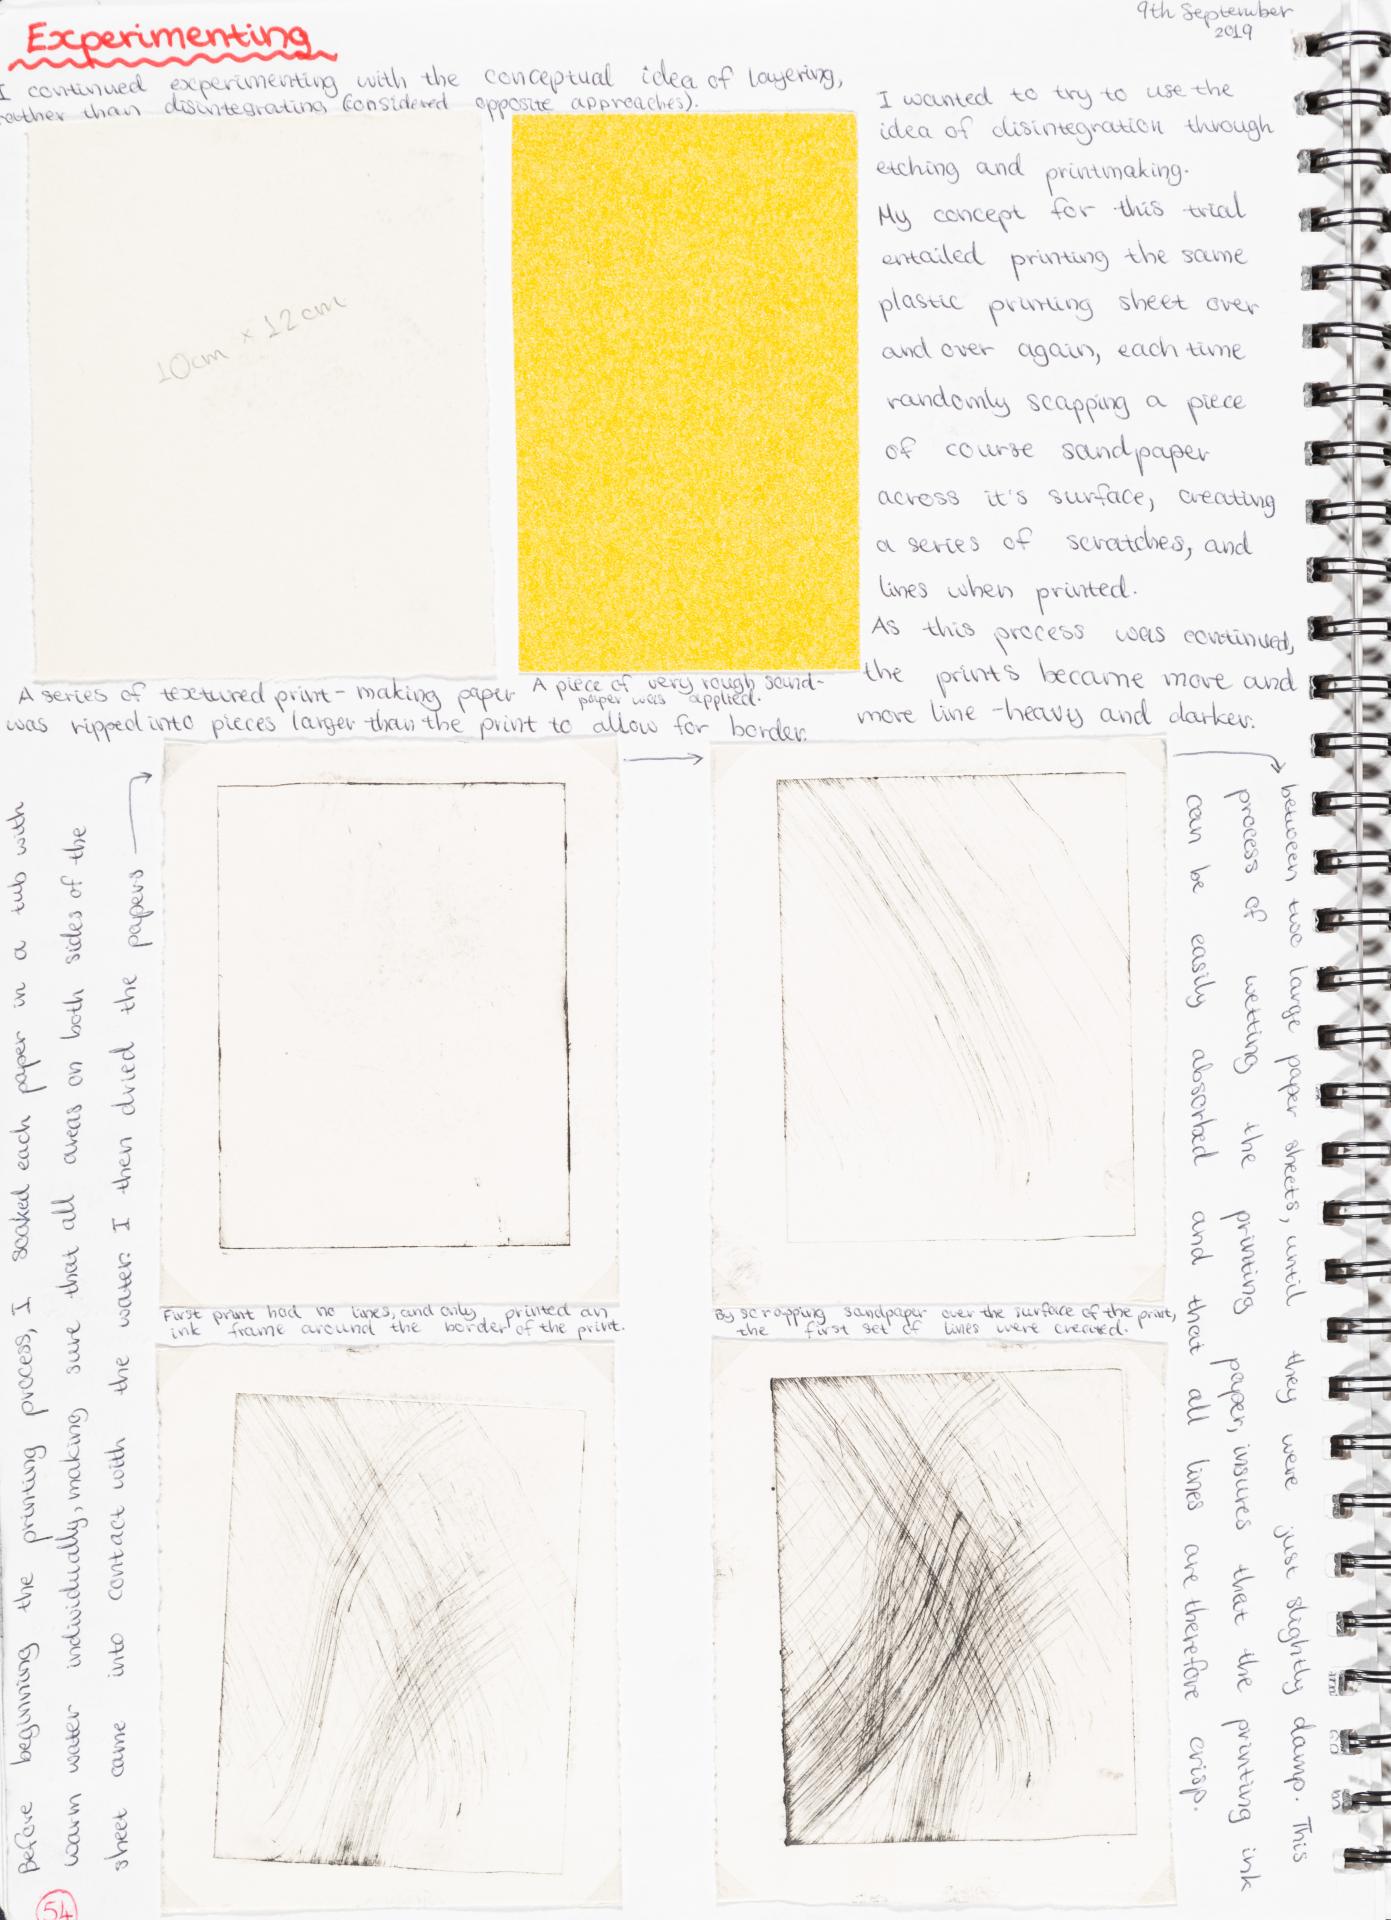 Experimenting
9th September
2019
I continued experimenting with the conceptual idea of layering,
rather than disintegrating (considered opposite approaches).
I wanted to try to use the
idea of disintegration through
etching and printmaking.
My concept for this trial
entailed printing the same
plastic priming sheet over
and over again, each time
randomly scapping a piece
of course sandpaper
across it's surface, creating
a series of scratches, and
lines when printed.
As this process was continued,
the prints became more and
more line-heavy and darker.
10cm x 12cm
A series of textured print-making paper
was ripped into pieces larger than the print to allow for border.
A piece of very rough sand-
paper was applied.
Before beginning the printing process, I soaked each paper in a tub with
warm water individually, making sure that all areas on both sides of the
sheet came into contact with the water. I then dried the papers
between two large paper sheets, until they were just slightly damp. This
process of wetting the printing paper, insures that the printing ink
can be easily absorbed and that all lines are therefore crisp.
First print had no lines, and only printed an
ink frame around the border of the print.
By scrapping sandpaper over the surface of the print,
the first set of lines were created.
54